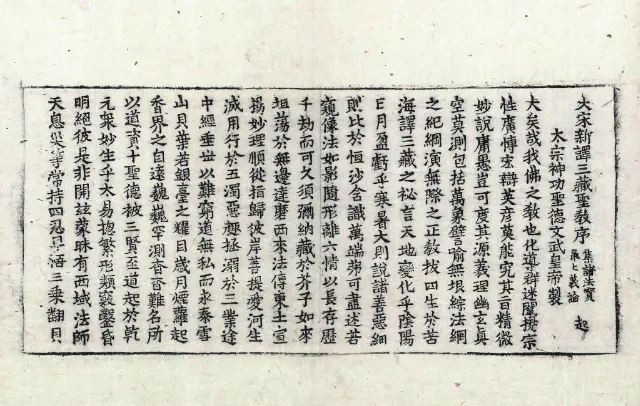 大宋新譯三藏聖教序 集諸法寶 㝡上義論 起
太宗神功聖德文武皇帝製
大矣哉我佛之教也化導群迷闡揚宗
性廣博宏辯英彥莫能究其旨精微
妙說庸愚豈可度其源義理幽玄真
空莫測包括萬象譬喻無垠綜法網
之紀綱演無際之正教拔四生於苦
海譯三藏之祕言天地變化乎陰陽
日月盈虧乎寒暑大則說諸善惡細
則比於恒沙含識萬端弗可盡述若
窺像法如影隨形離六情以長存歷
千劫而可久須彌納藏於芥子如來
坦蕩於無邊達磨西來法傳東土宣
揚妙理順從指歸彼岸菩提愛河生
滅用行於五濁惡趣拯溺於三業途
中經垂世以難窮道無私而永泰雪
山貝葉若銀臺之耀目歲月煙蘿起
香界之自遠巍巍罕測杳杳難名所
以道資十聖德被三賢至道起於乾
元衆妙生乎太易揔繁形類竅鑿昏
明絕彼是非開茲蒙昧有西域法師
天息災等常持四忍早悟三乘翻貝